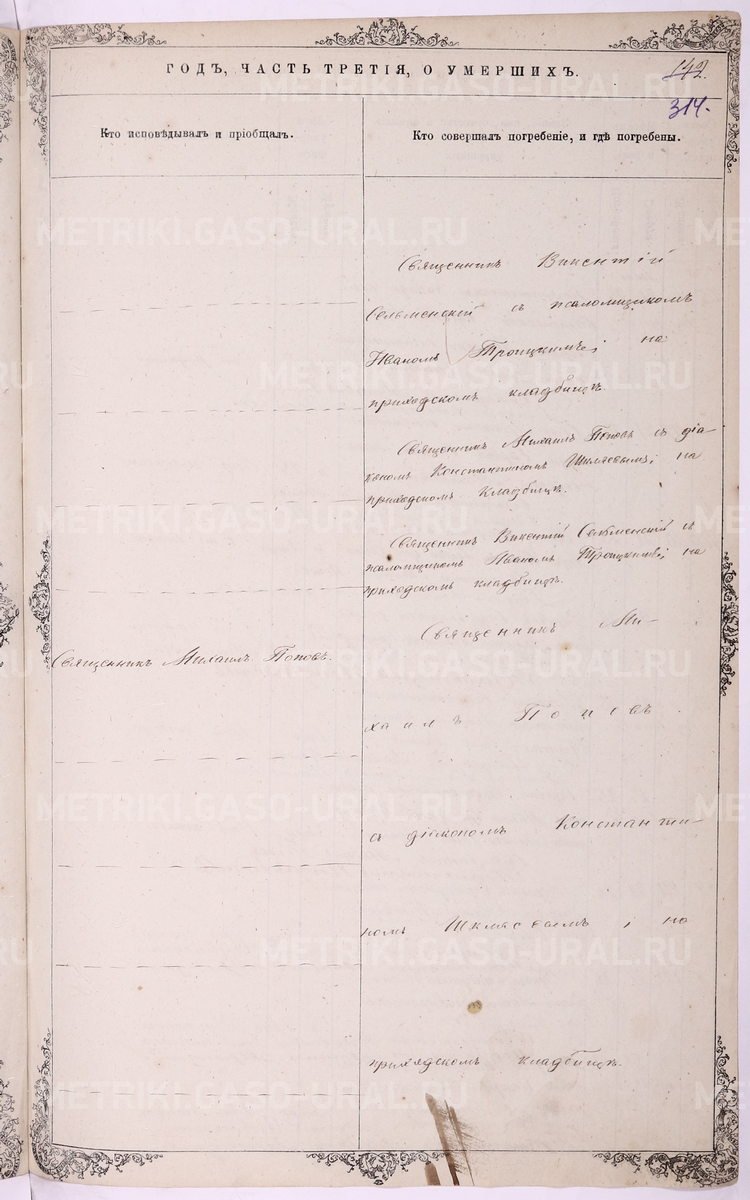 ГОДЪ, ЧАСТЬ ТРЕТІЯ, О УМЕРШИХЪ.
142.
314.
Кто исповѣдывалъ и пріобщалъ.
Кто совершалъ погребеніе, и гдѣ погребены.
Священникъ Викентій
Сельменскій съ псаломщикомъ
Иваномъ Троицкимъ; на
приходскомъ кладбищѣ.
Священникъ Михаилъ Поповъ съ діа-
кономъ Константиномъ Шиляевымъ; на
приходскомъ кладбищѣ.
Священникъ Викентій Сельменскій съ
псаломщикомъ Иваномъ Троицкимъ; на
приходскомъ кладбищѣ.
Священникъ Михаилъ Поповъ.
Священникъ Ми-
хаилъ Поповъ
съ діакономъ Константи-
номъ ; на
приходскомъ кладбищѣ.
METRIKI.GASO-URAL.RU